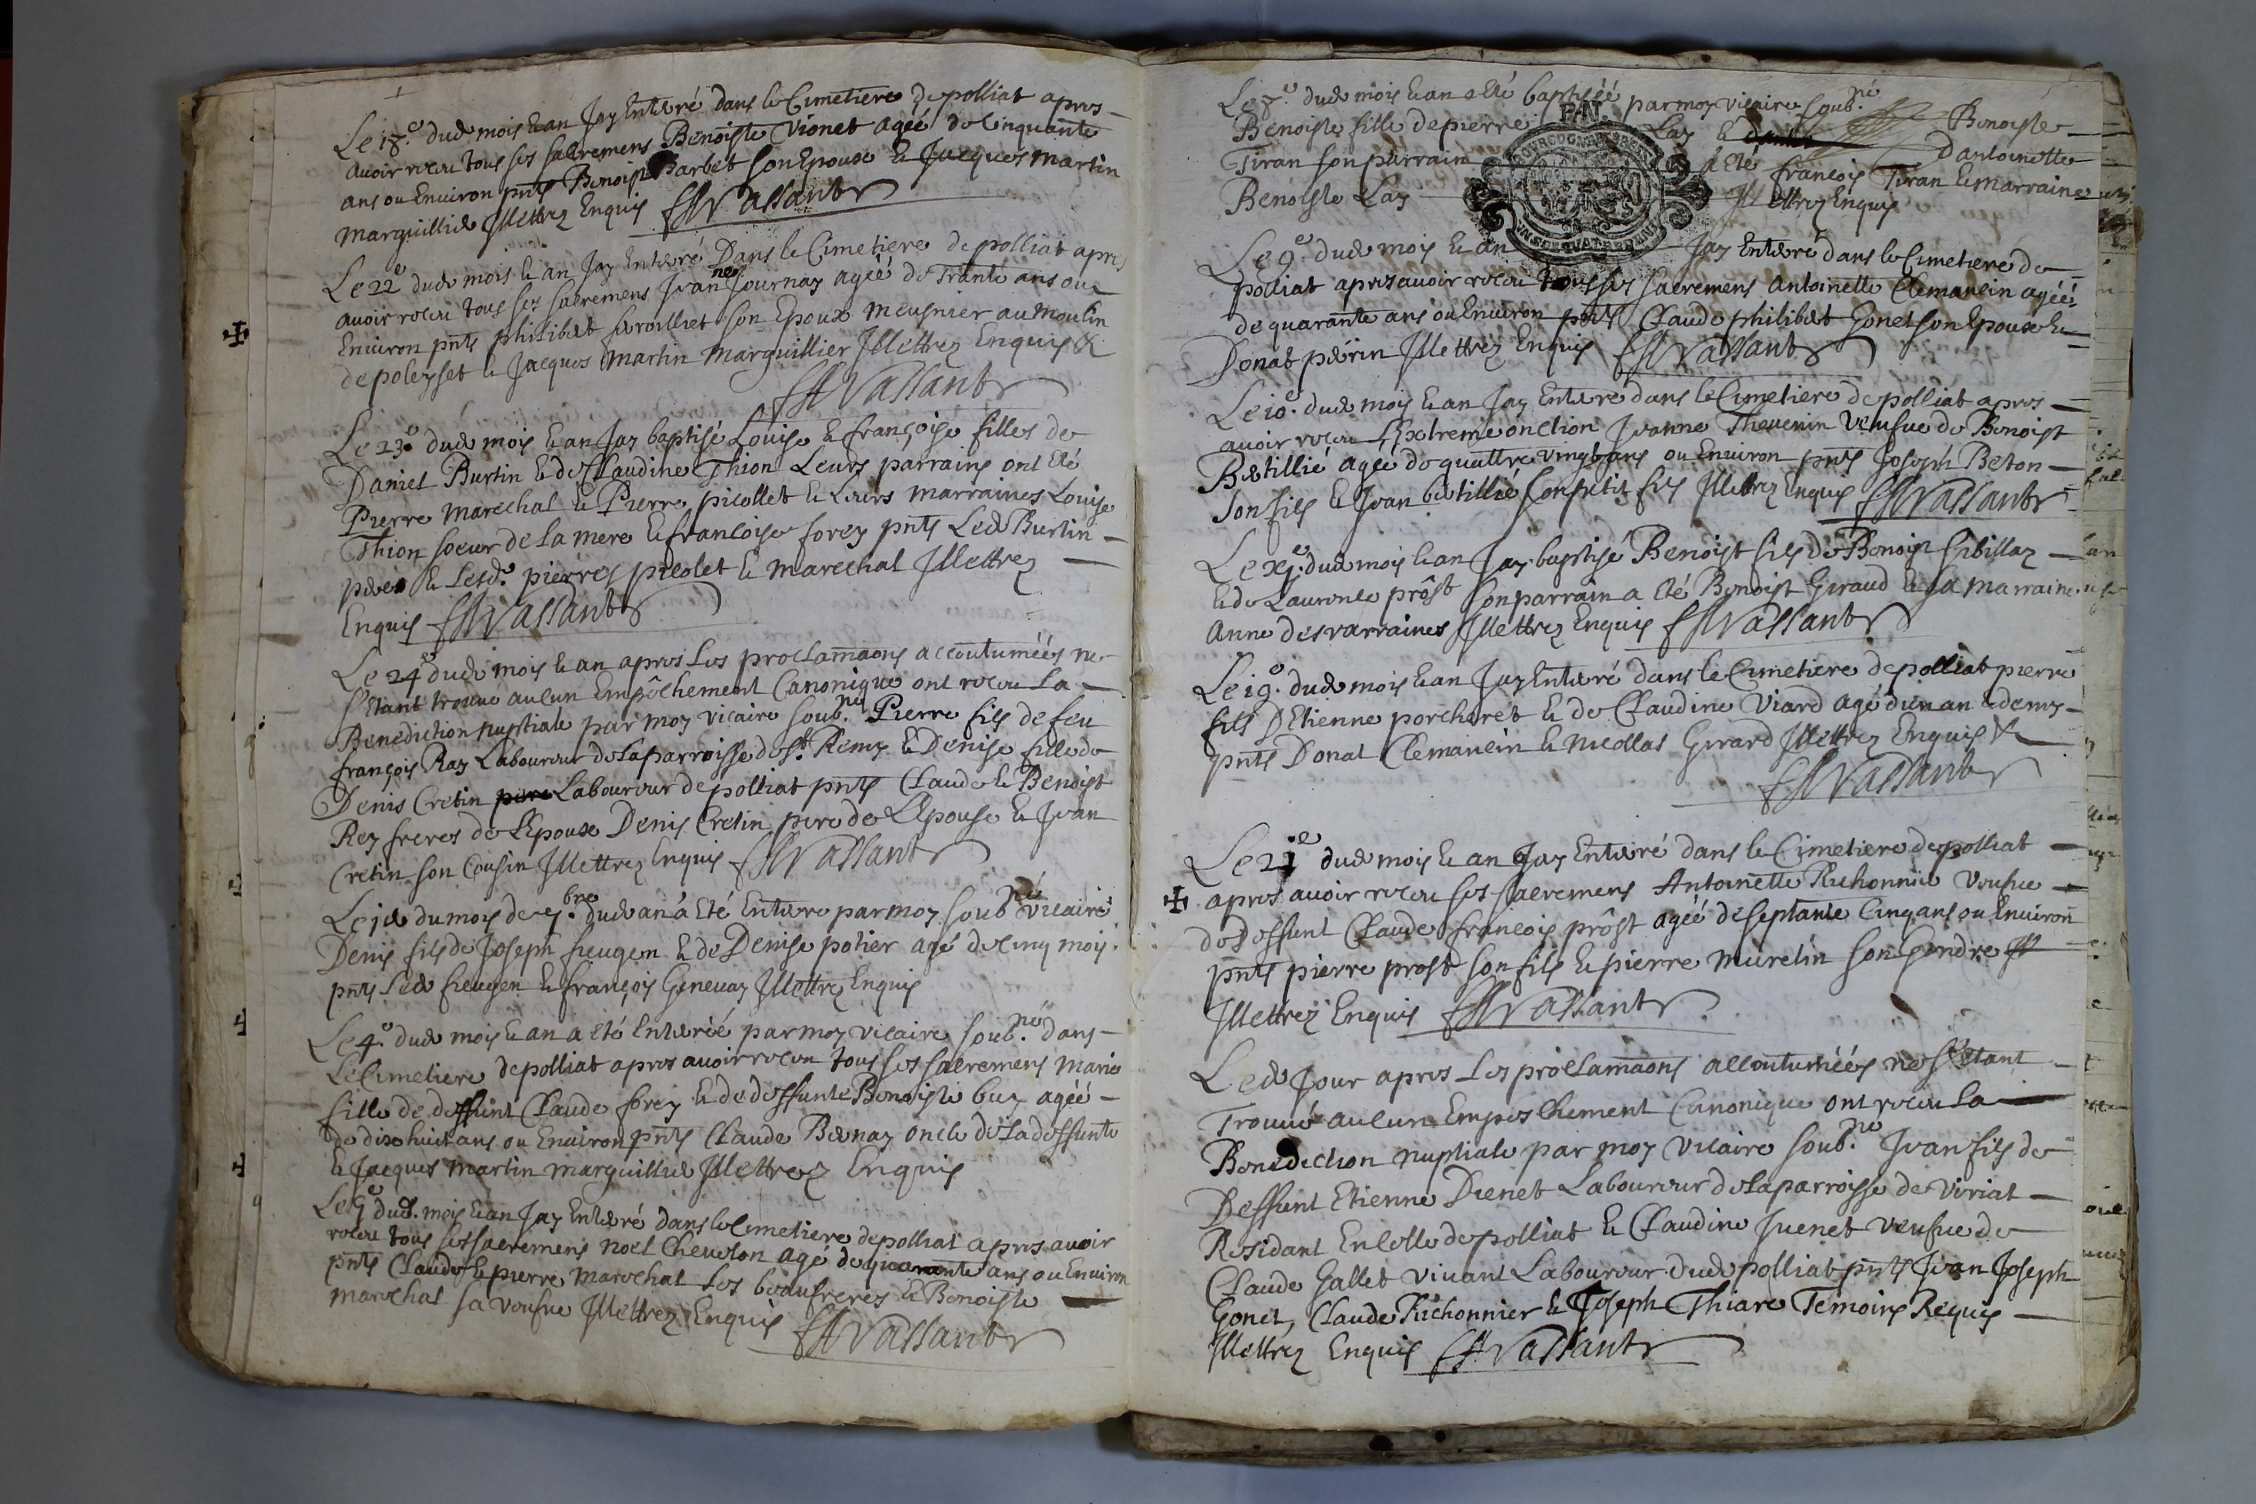 Le 18.e dud mois & an Jay Enterré dans le Cimetiere de polliat apres
avoir receu tous ses sacremens Benoiste Vionet agéé de Cinquante
ans ou Environ pnts Benoist Barbet son Epoux & Jacques Martin
Marguillier Illettrez Enquis Vassant
Le 22e dud mois & an Jay Enterré Dans le Cimetiere de polliat apres
avoir receu tous ses sacremens Jeanne Journay agéé de Trante ans ou
Environ pnts philibert son Epoux Meusnier au Moulin
de poleyset & Jacques Martin Marguillier Illettrez Enquis &
Vassant
Le 23.e dud mois & an Jay baptisé Louise & françoise filles de
Daniel Burtin & de Claudine Thion Leurs parrains ont été
Pierre Marechal & Pierre picollet & Leurs Marraines Louise
Thion soeur de la mere & francoise forey pnts Led Burtin
pere & Lesd. pierres picolet & Marechal Illettrez
Enquis Vassant
Le 24e dud mois & an apres Les proclamaons accoutuméés ne
s'Etant trouvé aucun Empêchement Canonique ont receu La
Benediction nuptiale par moy vicaire soub.né Pierre fils de feu
françois Ray Laboureur de La parroisse de St. Remy & Denise fille de
Denis Cretin Laboureur de polliat pnts Claude & Benoist
Rey freres de L'Epoux Denis Cretin pere de L'Epouse & Jean
Cretin son Cousin Illettrez Enquis Vassant
Le 1er du mois de 7.bre dud an à Eté Enterré par moy soub.né vicaire
Denis fils de Joseph fieugen & de Denise potier agé de Cinq mois
pnts Led fieugen & françois Genevay Illettrez Enquis
Le 4.e dud mois & an a eté Enterréé par moy vicaire soub.né dans
Le Cimetiere de polliat apres avoir receu tous ses sacremens Marie
fille de deffunt Claude forey & de deffunte Benoiste buy agéé
de dix huict ans ou Environ pnts Claude Bernay oncle de La deffunte
& Jacques Martin Marguillier Illettrez Enquis
Le 5e dud. mois & an Jay Enterré dans le Cimetiere de polliat apres avoir
receu tous ses sacremens noel Cheveton agé de quarante ans ou Environ
pnts Claude & pierre Marechal Les beaufreres & Benoiste
Marechal sa veufve Illettrez Enquis Vassant
Le 8.e dud mois & an a été baptiséé par moy vicaire soub.né
Benoiste fille de pierre Lay & Benoiste
Tiran son parrain à été francois Tiran & marraine
Benoiste Lay Illettrez Enquis
Le 9.e dud mois & an Jay Enterré dans le Cimetiere de
polliat apres avoir receu tous ses sacremens Antoinette Clemancin agéé
de quarante ans ou Environ pnts Claude philibert Gonet son Epoux &
Donat perrin Illettrez Enquis Vassant
Le 10.e dud mois & an Jay Enterré dans le Cimetiere de polliat apres
avoir receu L'Extreme onction Jeanne Thevenin veufve de Benoist
Betillié agéé de quattre vingt ans ou Environ pnts Joseph Beton
son fils & Jean betillié son petit fils Illettrez Enquis Vassant
Le xj.e dud mois & an Jay baptisé Benoist fils de Benoist sibillay
& de Laurence prôst son parrain a eté Benoist Giraud & sa marraine
Anne desvarraines Illettrez Enquis Vassant
Le 19.e dud mois & an Jay Enterré dans le Cimetiere de polliat pierre
fils d'Etienne porcheret & de Claudine Viard agé d'un an & demy
pnts Donat Clemancin & nicollas Girard Illettrez Enquis &
Vassant
Le 21e dud mois & an Jay Enterré dans le Cimetiere de polliat
apres avoir receu ses sacremens Antoinette Richonnier veufve
de deffunt Claude francois prôst agéé de septante Cinq ans ou Environ
pnts pierre prost son fils & pierre Muretin son Gendre
Illettrez Enquis Vassant
Led Jour apres Les proclamaons accoutuméés ne s'Etant
Trouvé aucun Empeschement Canonique ont receu La
Benediction nuptiale par moy vicaire soub.né Jean fils de
Deffunt Etienne Dienet Laboureur de La parroisse de Viriat
Residant En Celle de polliat & Claudine Juenet veufve de
Claude Gallet vivant Laboureur dud polliat pnts Jean Joseph
Gonet, Claude Richonnier & Joseph Thiare Temoins Requis
Illettrez Enquis Vassant